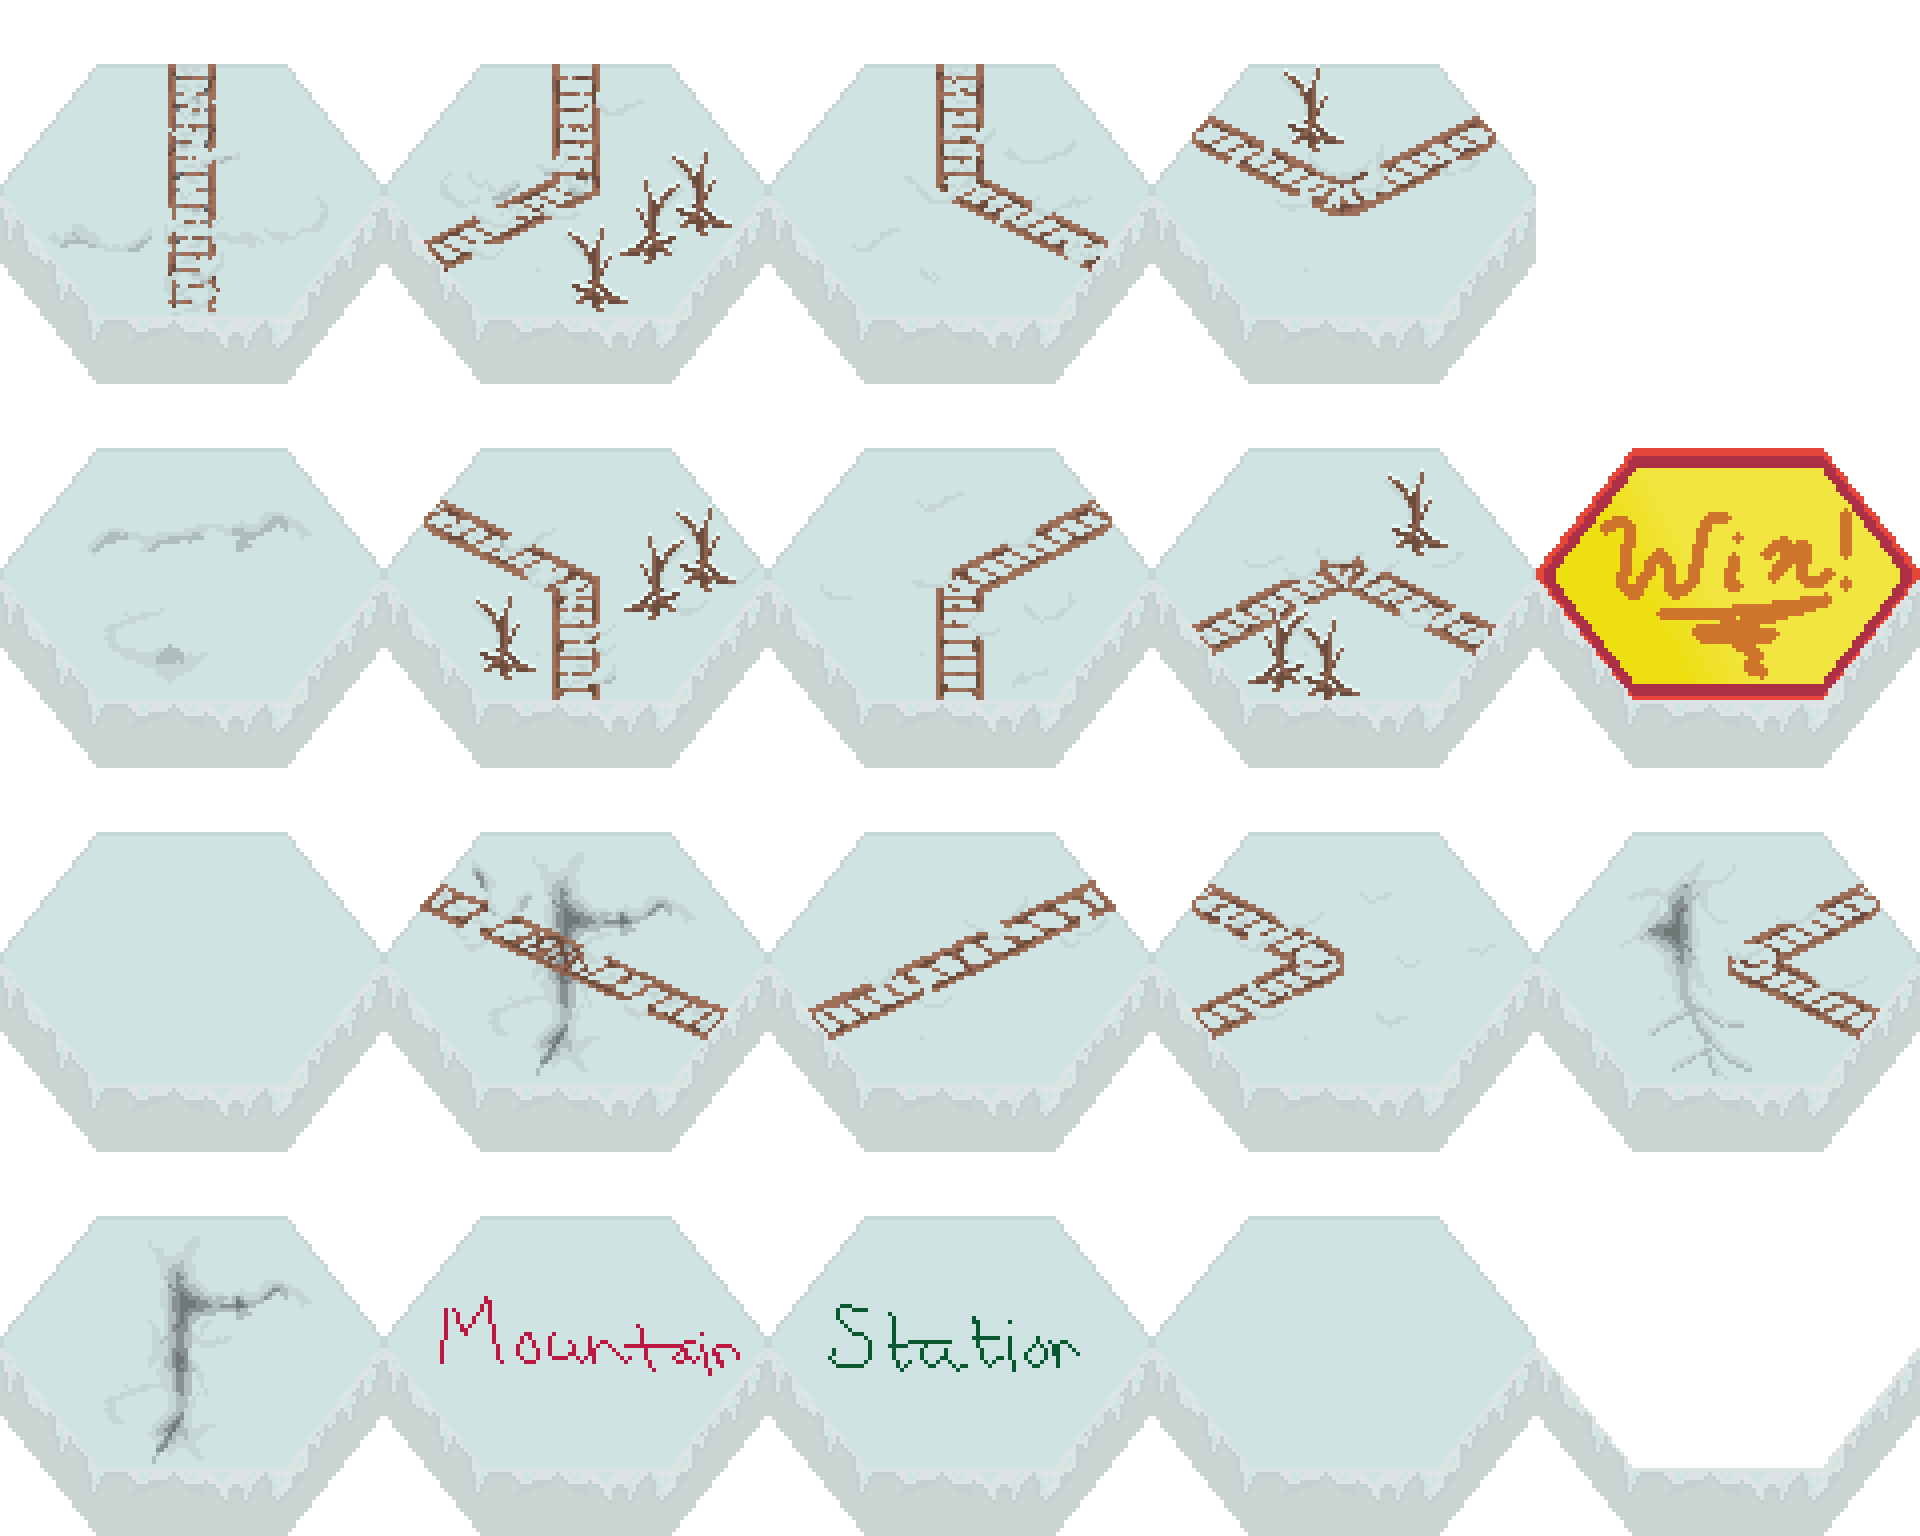 Win!
Mountain
Station